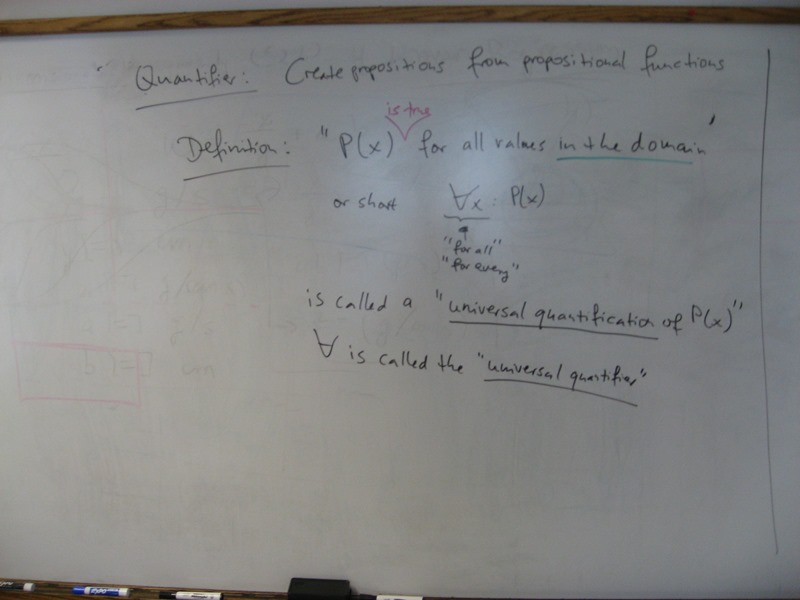 Quantifier: Create propositions from propositional functions
is true
Definition: "P(x) for all values in the domain"
or short ∀x: P(x)
"for all"
"for every"
is called a "universal quantification of P(x)"
∀ is called the "universal quantifier"